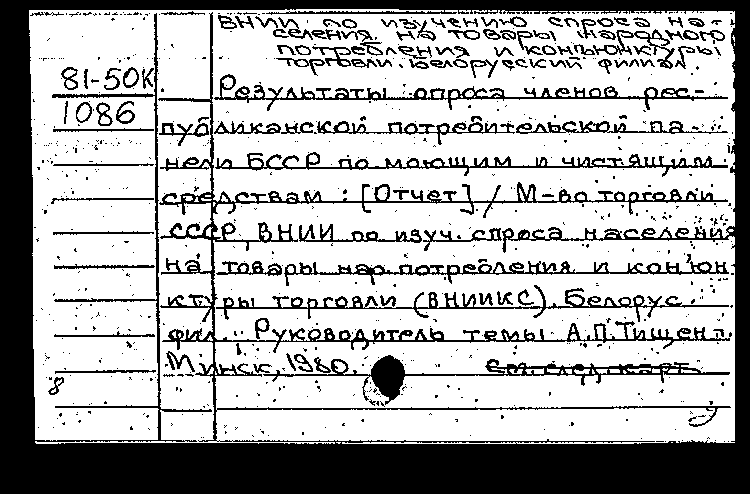 ВНИИ по изучению спроса на-
селения на товары народного
потребления и конъюнктуры
торговли. Белорусский филиал.
81-50К
1086
Результаты опроса членов рес-
публиканской потребительской па-
нели БССР по моющим и чистящим
средствам : [Отчет] / М-во торговли
СССР, ВНИИ по изуч. спроса населения
на товары нар. потребления и конъюн-
ктуры торговли (ВНИИКС). Белорус.
фил.; Руководитель темы А.П.Тищен.
Минск, 1980.
См. след. карт.
8